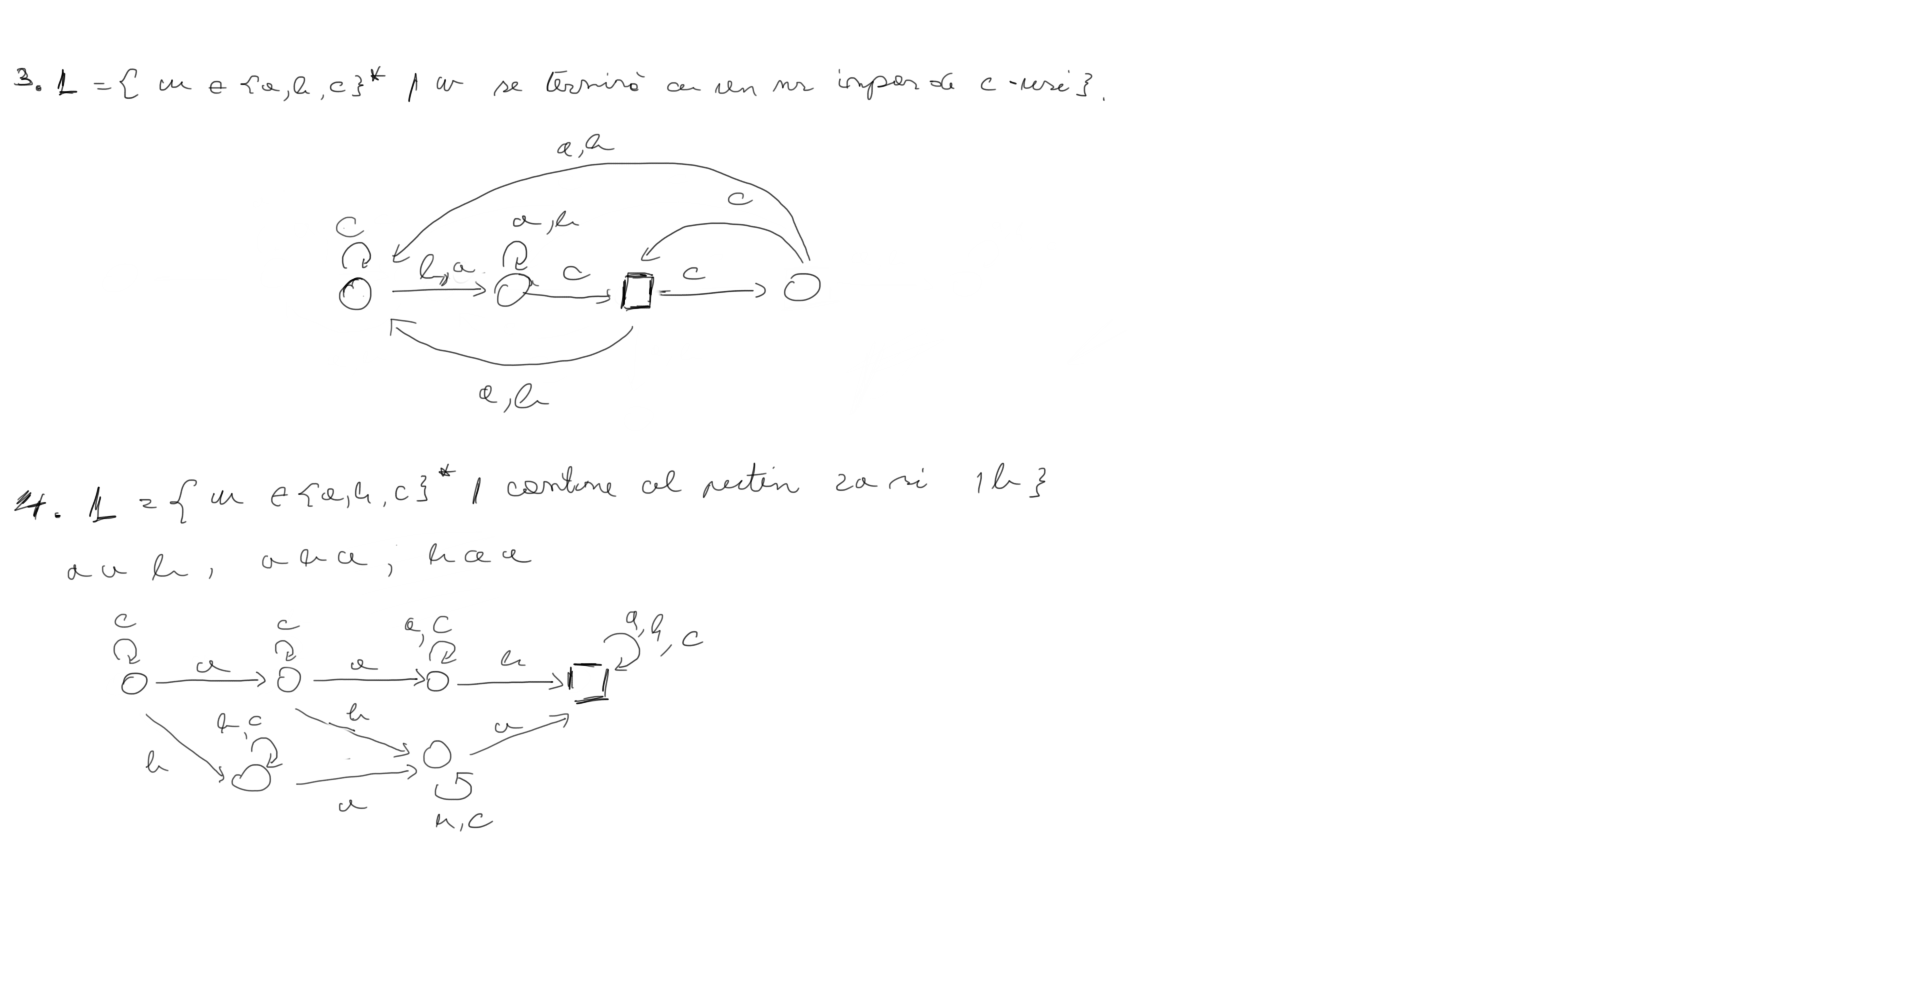 3. L = { w ∈ {a,b,c}* | w se termină cu un nr impar de c-uri}.
a,b
c
c
a,b
b,a
c
c
a,b
4. L = { w ∈ {a,b,c}* | contine cel putin 2a si 1b }
aab, aba, baa
c
c
a,c
a,b,c
a
a
b
b,c
b
a
b
a
b,c